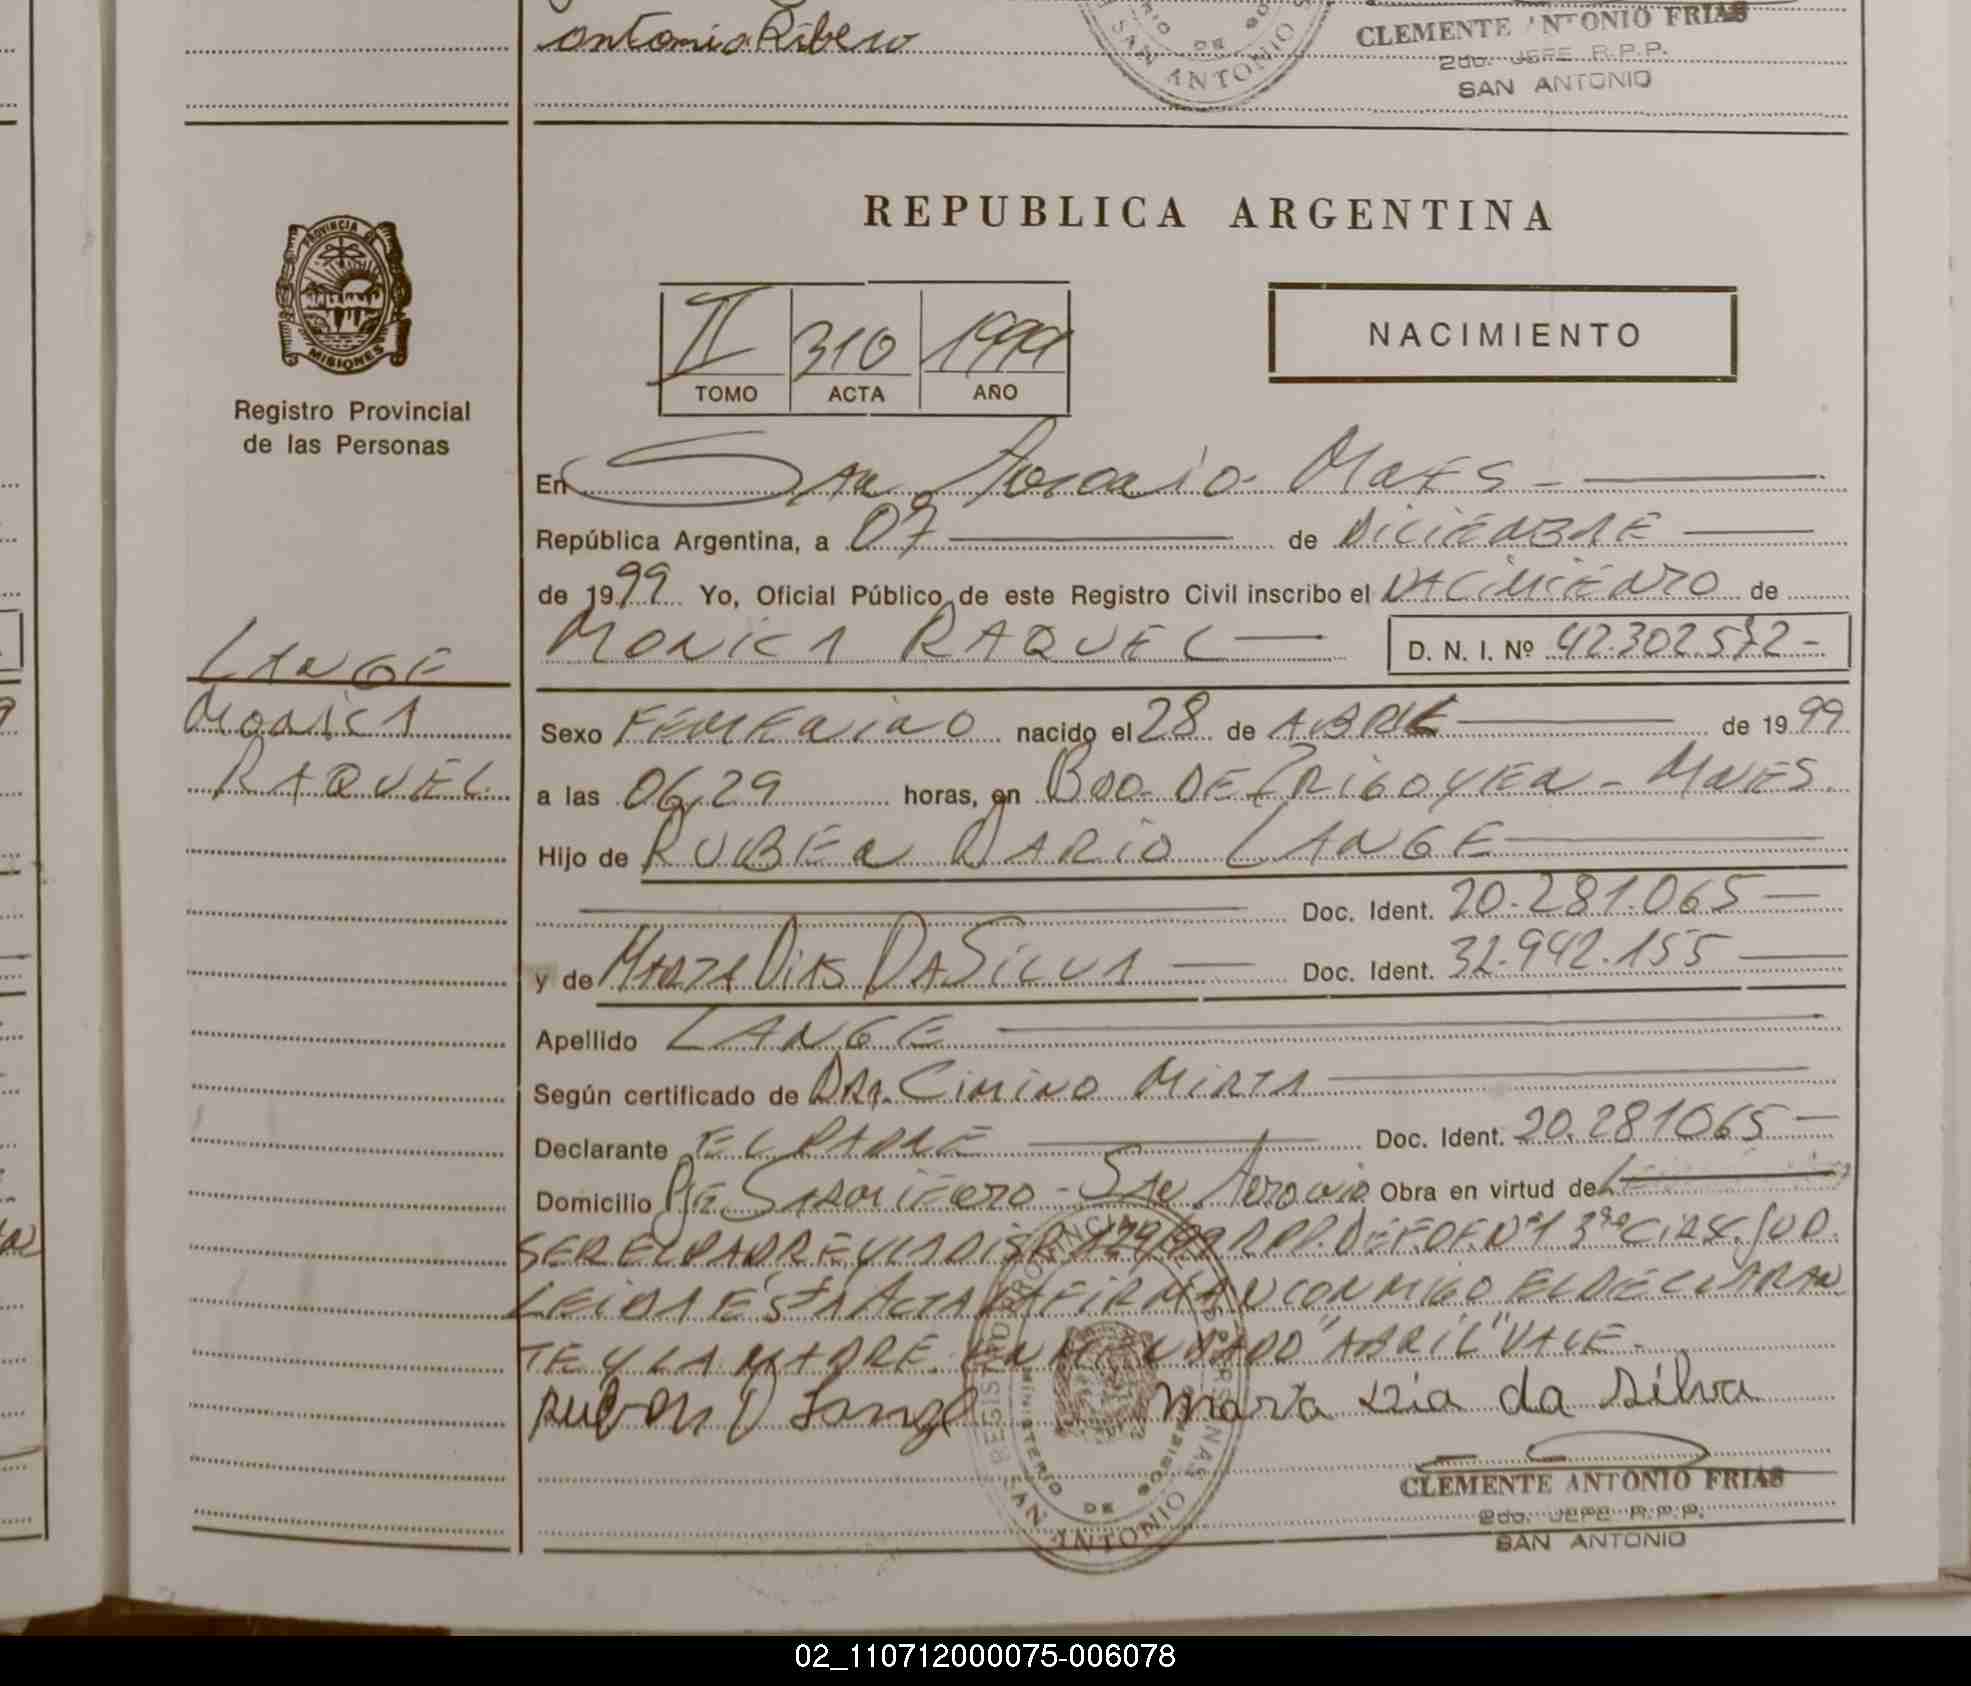 Antonio Ribero
SAN ANTONIO
CLEMENTE ANTONIO FRIAS
2do. JEFE R.P.P.
SAN ANTONIO
REPUBLICA ARGENTINA
PROVINCIA DE
MISIONES
Registro Provincial
de las Personas
II 310 1999
TOMO ACTA AÑO
NACIMIENTO
En San Antonio - Mnes -
República Argentina, a 07 de DICIEMBRE
de 1999 Yo, Oficial Público de este Registro Civil inscribo el NACIMIENTO de
MONICA RAQUEL D. N. I. Nº 42.302.572-
LANGE
MONICA
RAQUEL
Sexo FEMENINO nacido el 28 de ABRIL de 1999
a las 06,29 horas, en BDO. DE IRIGOYEN - MNES.
Hijo de RUBEN DARIO LANGE
Doc. Ident. 20.281.065
y de MARTA DIAS DA SILVA Doc. Ident. 32.942.155
Apellido LANGE
Según certificado de DRA. CIMINO MIRTA
Declarante EL PADRE Doc. Ident. 20.281065
Domicilio PJE SARMIENTO - SAN ANTONIO Obra en virtud de
SER EL PADRE Y LA DISP. 129/99 RPP. DEF OF Nº 1 3ra CIRSC. JUD.
LEIDA ESTA ACTA LA FIRMAN CONMIGO EL DECLARAN
TE Y LA MADRE. ENMENDADO "ABRIL" VALE.
Ruben D Lange Marta Dia da Silva
REGISTRO PROVINCIAL DE LAS PERSONAS
MINISTERIO DE GOBIERNO
SAN ANTONIO
CLEMENTE ANTONIO FRIAS
2do. JEFE R.P.P.
SAN ANTONIO
02_110712000075-006078